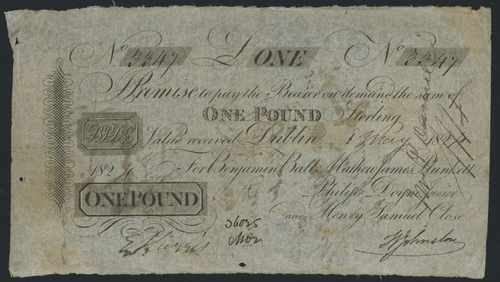 No 3347 £ ONE No 3347
I Promise to pay the Bearer on demand the sum of
ONE POUND Sterling
BPD&C Value received Dublin 1 May 182
1824 For Benjamin Ball, Mathew James Plunkett
ONE POUND Philip Doyne Junior
and Henry Samuel Close
36025